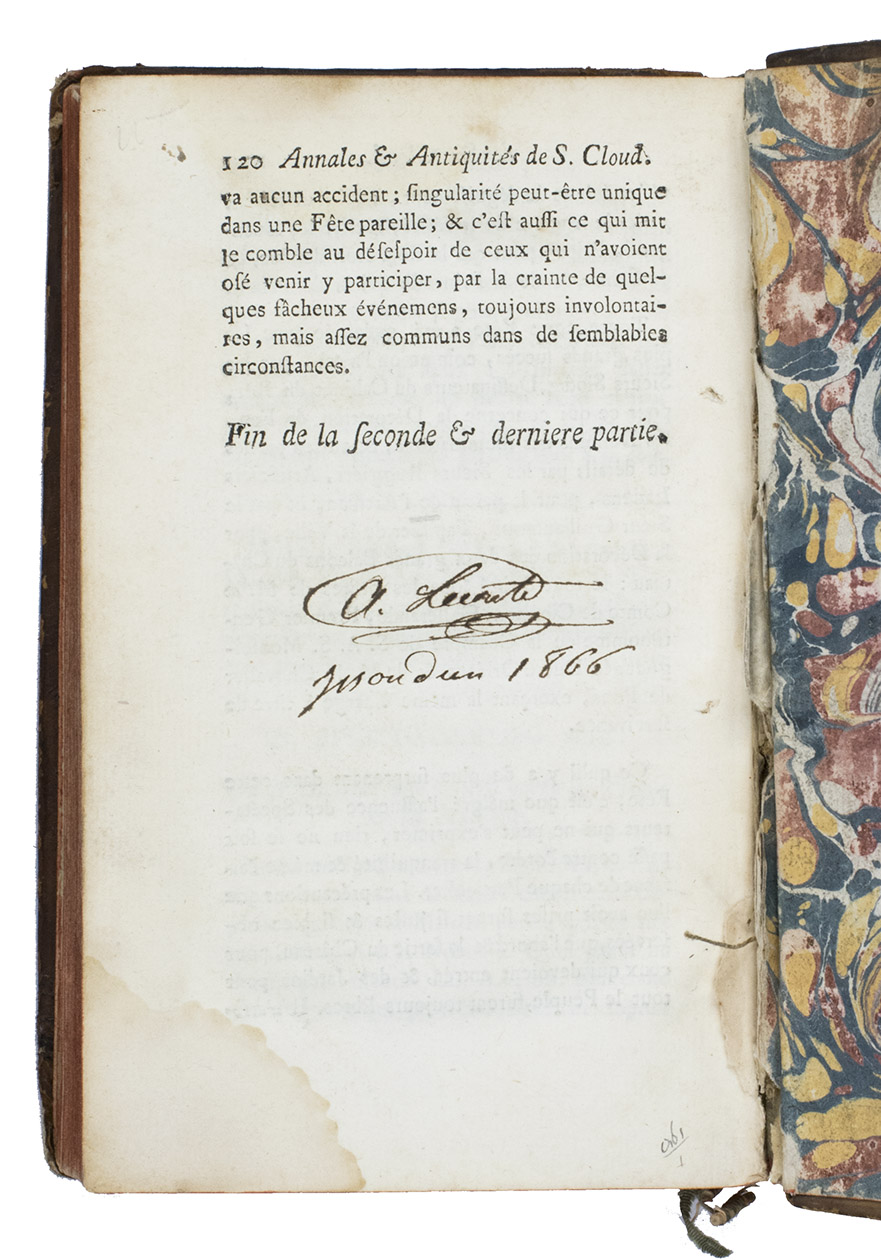 120 Annales & Antiquités de S. Cloud.
va aucun accident ; ſingularité peut-être unique
dans une Fête pareille ; & c'eſt auſſi ce qui mit
le comble au déſeſpoir de ceux qui n'avoient
oſé venir y participer, par la crainte de quel-
ques fâcheux événemens, toujours involontai-
res, mais aſſez communs dans de ſemblables
circonſtances.
Fin de la ſeconde & derniere partie.
A. Lecomte
Issoudun 1866